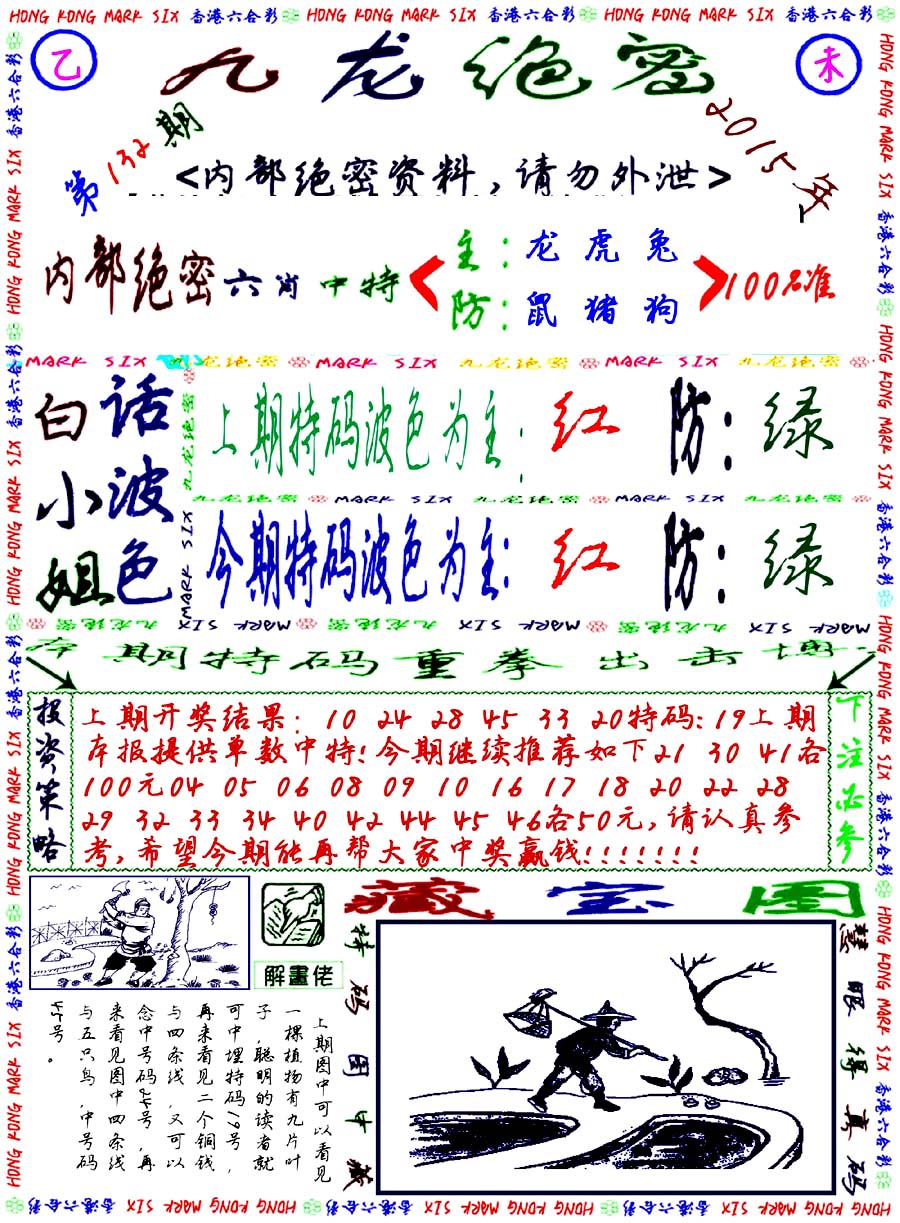 HONG KONG MARK SIX 香港六合彩 HONG KONG MARK SIX 香港六合彩 HONG KONG MARK SIX 香港六合彩
乙 九龙绝密 未
第132期 2015年
<内部绝密资料,请勿外泄>
内部绝密六肖中特
主:龙 虎 兔
防:鼠 猪 狗
100%准
MARK SIX 九龙绝密 MARK SIX 九龙绝密 MARK SIX 九龙绝密
白小姐
话波色
上期特码波色为主: 红 防: 绿
九龙绝密 MARK SIX 九龙绝密 MARK SIX 九龙绝密
今期特码波色为主: 红 防: 绿
九龙绝密 MARK SIX 九龙绝密 MARK SIX 九龙绝密 MARK SIX
本期特码重拳出击博
投资策略
上期开奖结果: 10 24 28 45 33 20特码:19上期
本报提供单数中特!今期继续推荐如下21 30 41各
100元04 05 06 08 09 10 16 17 18 20 22 28
29 32 33 34 40 42 44 45 46各50元,请认真参
考,希望今期能再帮大家中奖赢钱!!!!!!!
下注必参
解畫佬
藏宝图
特码图中藏
慧眼得真码
上期图中可以看见
一棵植物有九片叶
子,聪明的读者就
可中埋特码19号,
再来看见二个铜钱
与四条线,又可以
念中号码24号,再
来看见图中四条线
与五只鸟,中号码
45号。
HONG KONG MARK SIX 香港六合彩 HONG KONG MARK SIX 香港六合彩 HONG KONG MARK SIX 香港六合彩